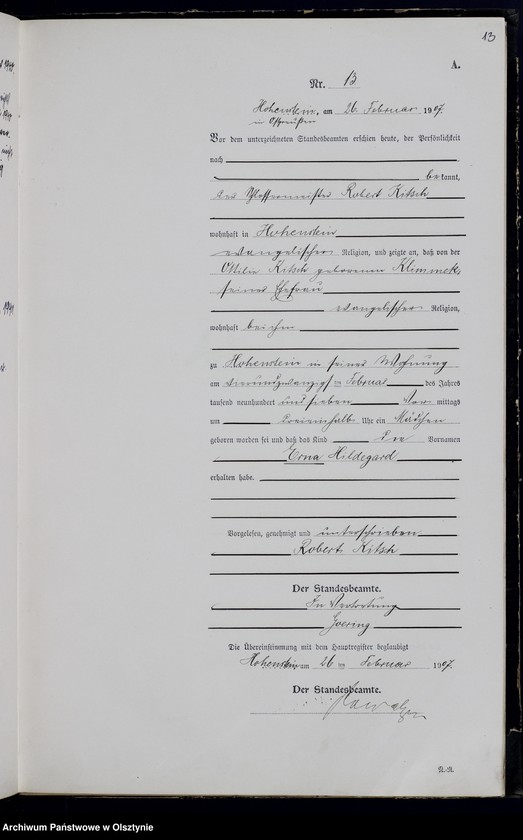 13
A.
Nr. 13
Hohenstein, am 26. Februar 1907.
in Ostpreußen
Vor dem unterzeichneten Standesbeamten erschien heute, der Persönlichkeit
nach
bekannt,
der Robert Kitsch
wohnhaft in Hohenstein
evangelischer Religion, und zeigte an, daß von der
Ottilie Kitsch geborenen Klimmek
seiner Ehefrau
evangelischer Religion,
wohnhaft bei ihm
zu Hohenstein in seiner Wohnung
am vierundzwanzigsten Februar des Jahres
tausend neunhundert und sieben Vormittags
um dreieinhalb Uhr ein Mädchen
geboren worden sei und daß das Kind die Vornamen
Erna Hildegard
erhalten habe.
Vorgelesen, genehmigt und unterschrieben
Robert Kitsch
Der Standesbeamte.
In Vertretung
Die Übereinstimmung mit dem Hauptregister beglaubigt
Hohenstein am 26 ten Februar 1907.
Der Standesbeamte.
Archiwum Państwowe w Olsztynie